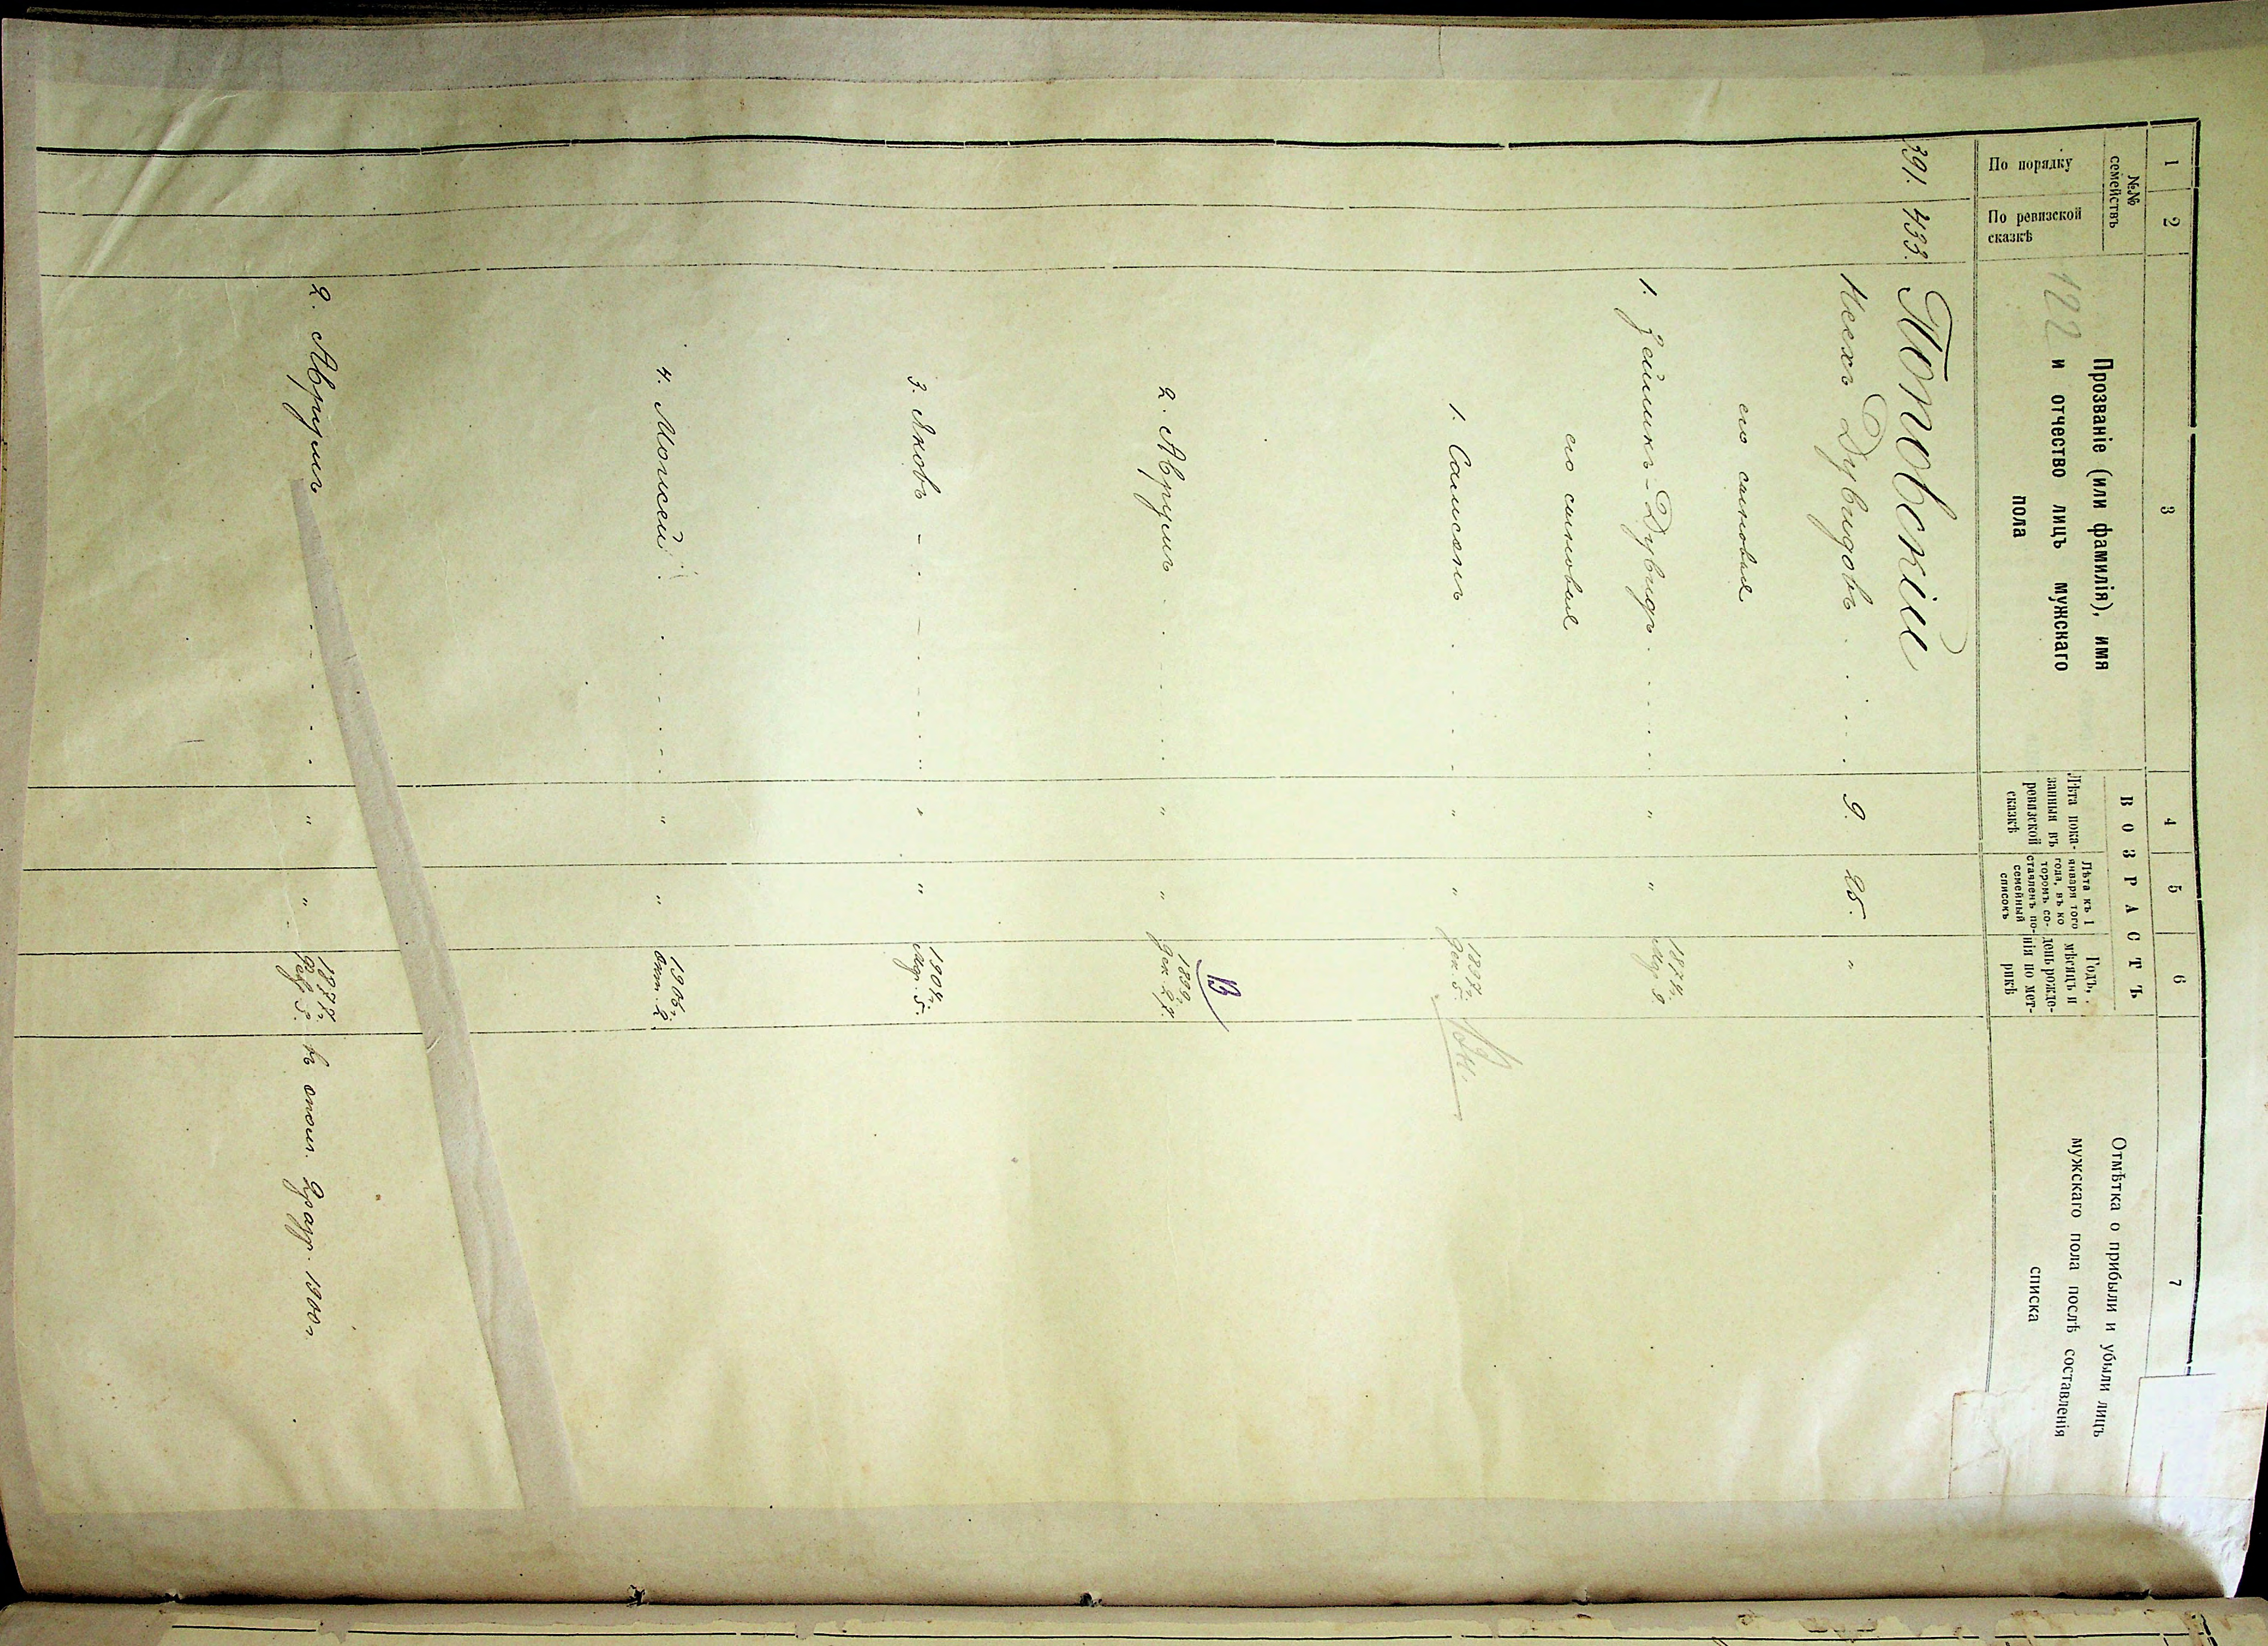 1 2 3 4 5 6 7
№№ семействъ
По порядку
По ревизской
сказкѣ
Прозваніе (или фамилія), имя
и отчество лицъ мужскаго
пола
122
ВОЗРАСТЪ
Лѣта пока-
занныя въ
ревизской
сказкѣ
Лѣта къ 1
января того
года, въ ко
торомъ со-
ставленъ по-
семейный
списокъ
Годъ,
мѣсяцъ и
день рожде-
нія по мет-
рикѣ
Отмѣтка о прибыли и убыли лицъ
мужскаго пола послѣ составленія
списка
391. 433. Поповскій
Дувидовъ . . . . 9. 25. "
его сыновья
1. Зейликъ-Дувидъ . . . . " " 1874г.
9.
его сыновья
1. Самсонъ . . . . " " 1897г.
Дек. 5.
13
2. Аврумъ . . . . " " 1899г.
Дек. 27.
3. Яковъ - . - . . . " " 1904г.
5.
4. Моисей . . . . " " 1906г.
Окт. 2.
2. Аврумъ . . . . " " 1877г.
въ опол. 2 разр. 1900г.